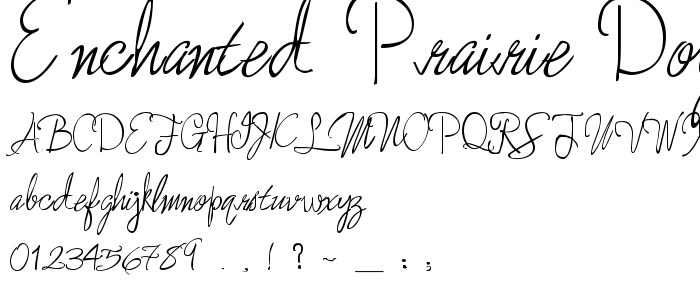 Enchanted Prairie Do
ABCDEFGHIJKLMNOPQRSTUVW
abcdefghijklmnopqrstuvwxyz
0123456789 . , ! ? ~ _ : ;